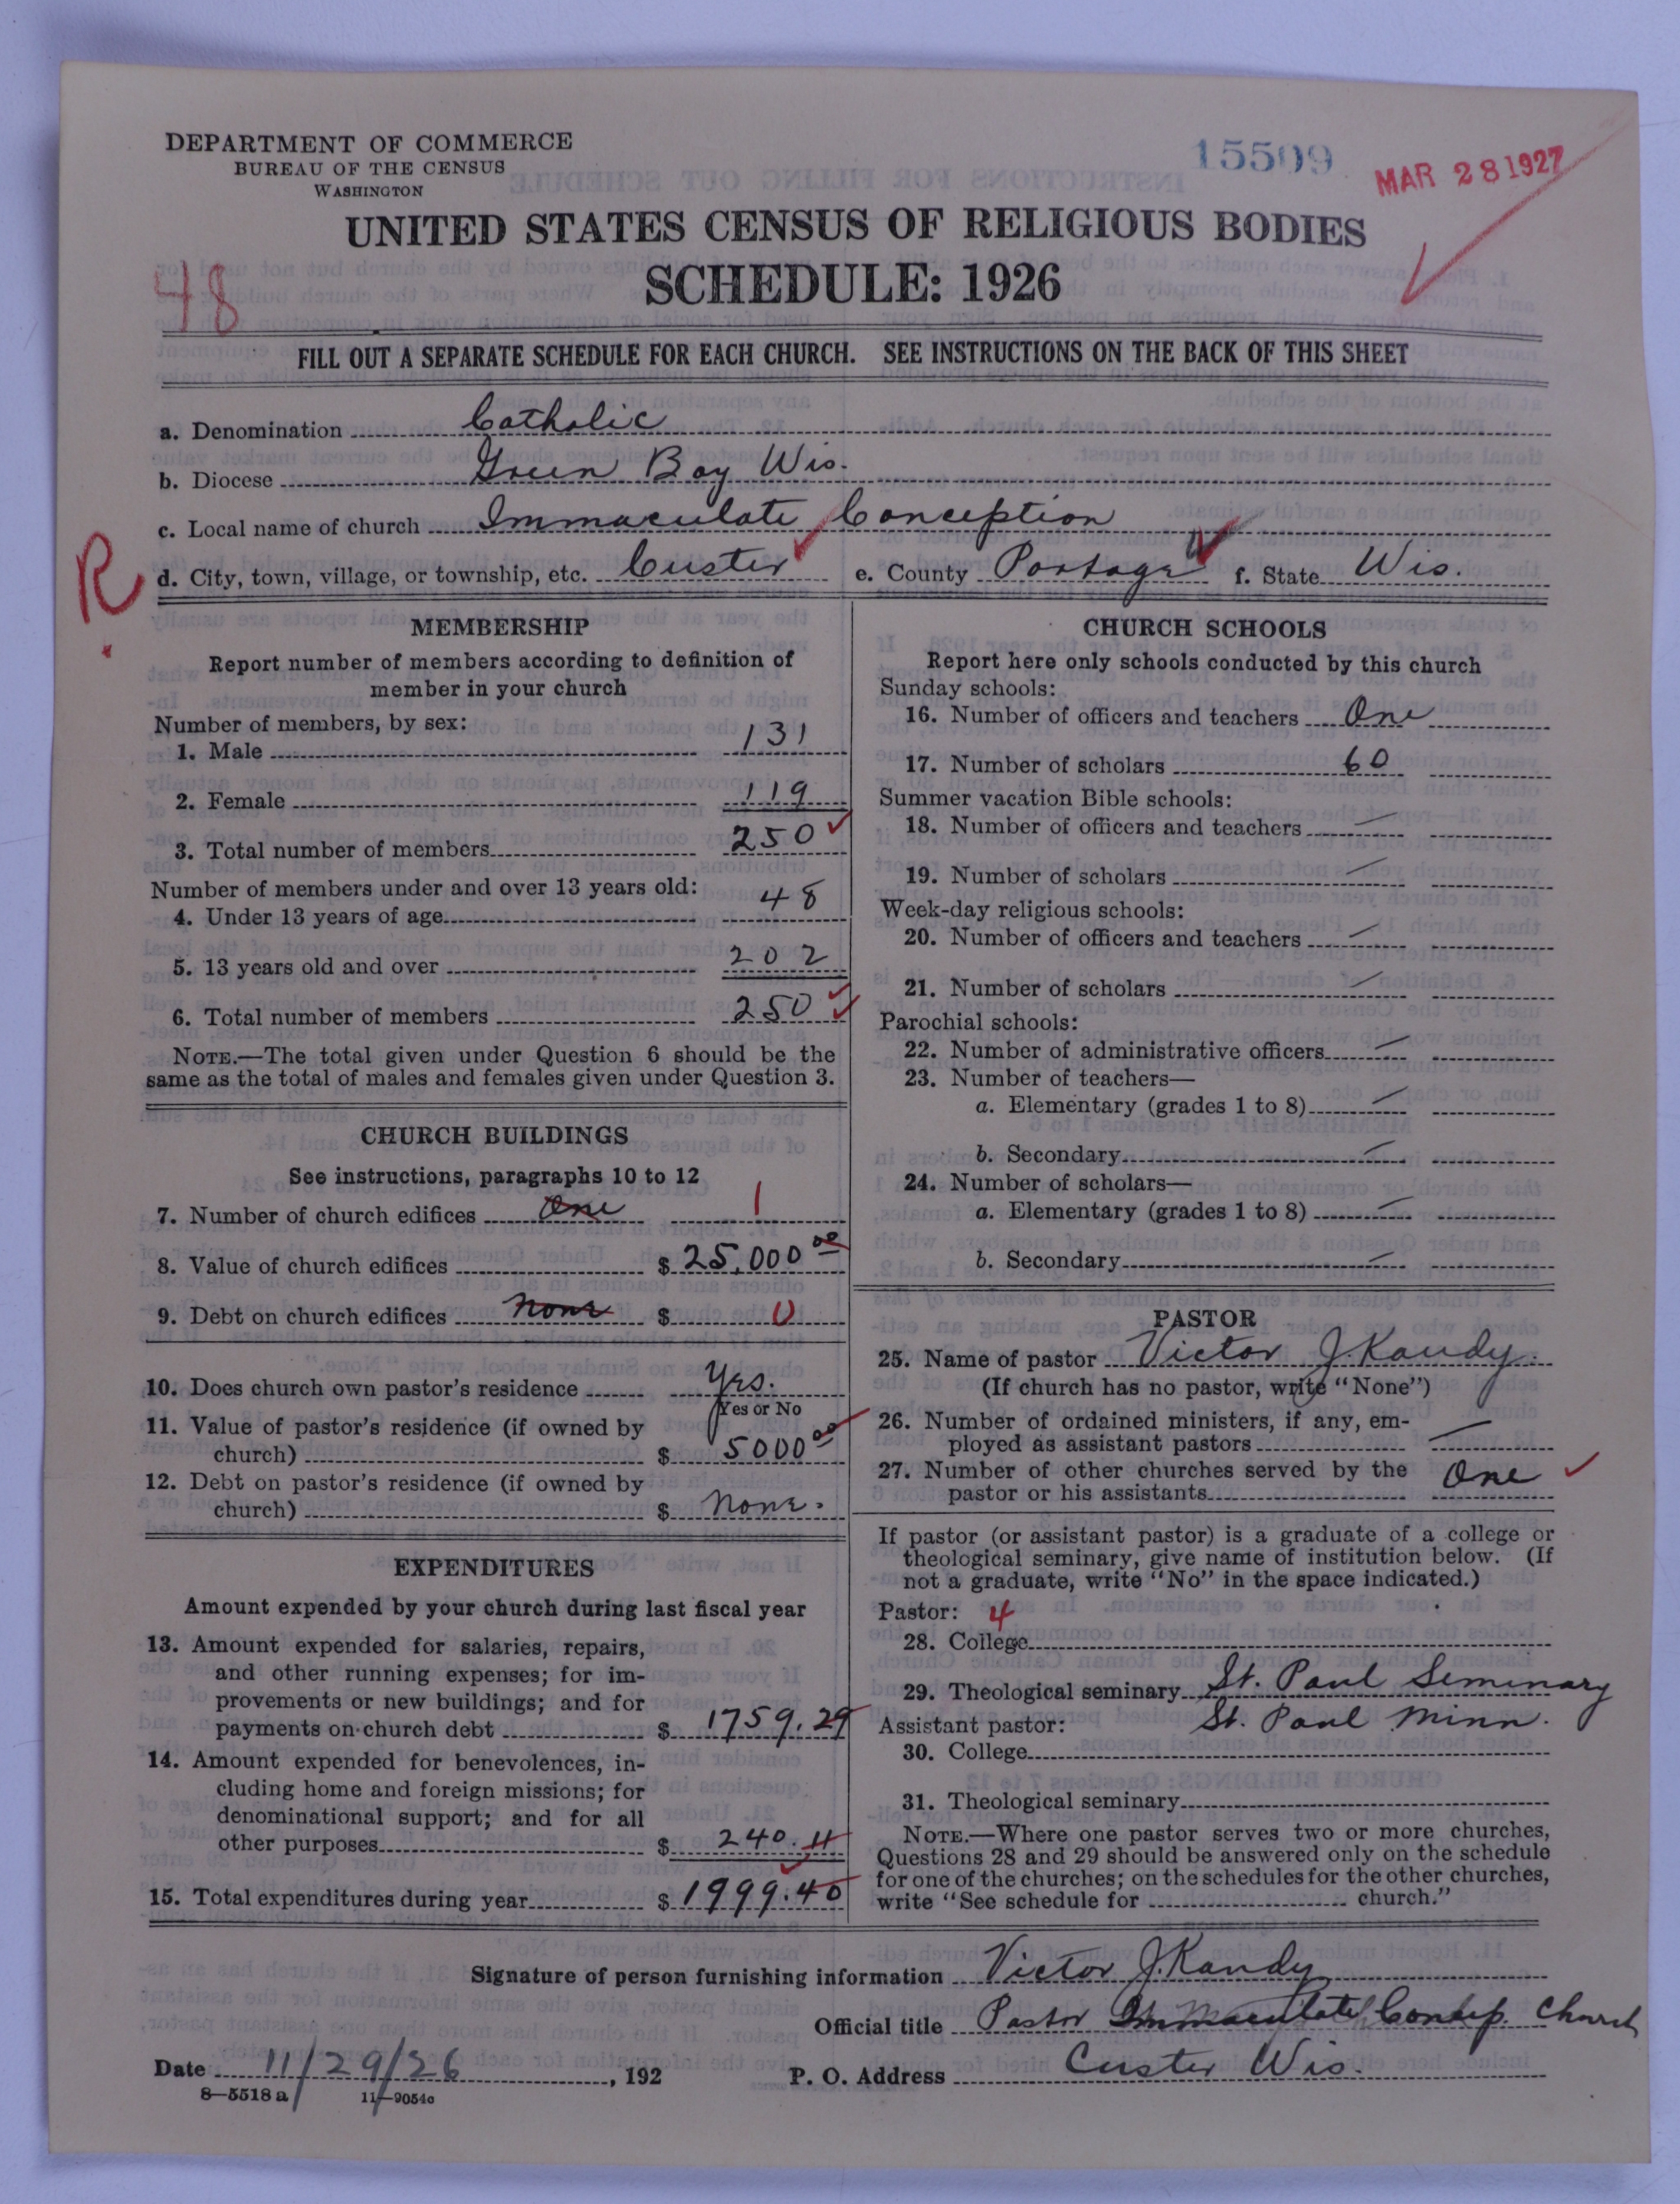 DEPARTMENT OF COMMERCE
BUREAU OF THE CENSUS
WASHINGTON
15509
MAR 28 1927
UNITED STATES CENSUS OF RELIGIOUS BODIES
SCHEDULE: 1926
48
FILL OUT A SEPARATE SCHEDULE FOR EACH CHURCH. SEE INSTRUCTIONS ON THE BACK OF THIS SHEET
a. Denomination Catholic
b. Diocese Green Bay Wis.
c. Local name of church Immaculate Conception
R
d. City, town, village, or township, etc. Custer e. County Portage f. State Wis.
MEMBERSHIP
Report number of members according to definition of
member in your church
Number of members, by sex:
1. Male 131
2. Female 119
3. Total number of members 250
Number of members under and over 13 years old:
4. Under 13 years of age 48
5. 13 years old and over 202
6. Total number of members 250
NOTE.—The total given under Question 6 should be the
same as the total of males and females given under Question 3.
CHURCH BUILDINGS
See instructions, paragraphs 10 to 12
7. Number of church edifices One 1
8. Value of church edifices $ 25,000 00
9. Debt on church edifices None $ 0
10. Does church own pastor's residence Yes.
Yes or No
11. Value of pastor's residence (if owned by
church) $ 5000 00
12. Debt on pastor's residence (if owned by
church) $ None.
EXPENDITURES
Amount expended by your church during last fiscal year
13. Amount expended for salaries, repairs,
and other running expenses; for im-
provements or new buildings; and for
payments on church debt $ 1759.29
14. Amount expended for benevolences, in-
cluding home and foreign missions; for
denominational support; and for all
other purposes $ 240.11
15. Total expenditures during year $ 1999.40
CHURCH SCHOOLS
Report here only schools conducted by this church
Sunday schools:
16. Number of officers and teachers One
17. Number of scholars 60
Summer vacation Bible schools:
18. Number of officers and teachers —
19. Number of scholars —
Week-day religious schools:
20. Number of officers and teachers —
21. Number of scholars —
Parochial schools:
22. Number of administrative officers —
23. Number of teachers—
a. Elementary (grades 1 to 8) —
b. Secondary —
24. Number of scholars—
a. Elementary (grades 1 to 8) —
b. Secondary —
PASTOR
25. Name of pastor Victor J. Kandy.
(If church has no pastor, write "None")
26. Number of ordained ministers, if any, em-
ployed as assistant pastors —
27. Number of other churches served by the
pastor or his assistants One
If pastor (or assistant pastor) is a graduate of a college or
theological seminary, give name of institution below. (If
not a graduate, write "No" in the space indicated.)
Pastor: 4
28. College
29. Theological seminary St. Paul Seminary
Assistant pastor: St. Paul Minn.
30. College
31. Theological seminary
NOTE.—Where one pastor serves two or more churches,
Questions 28 and 29 should be answered only on the schedule
for one of the churches; on the schedules for the other churches,
write "See schedule for church."
Signature of person furnishing information Victor J. Kandy
Official title Pastor Immaculate Concep. Church
Date 11/29/26, 192 P. O. Address Custer Wis.
8—5518 a 11—9054a